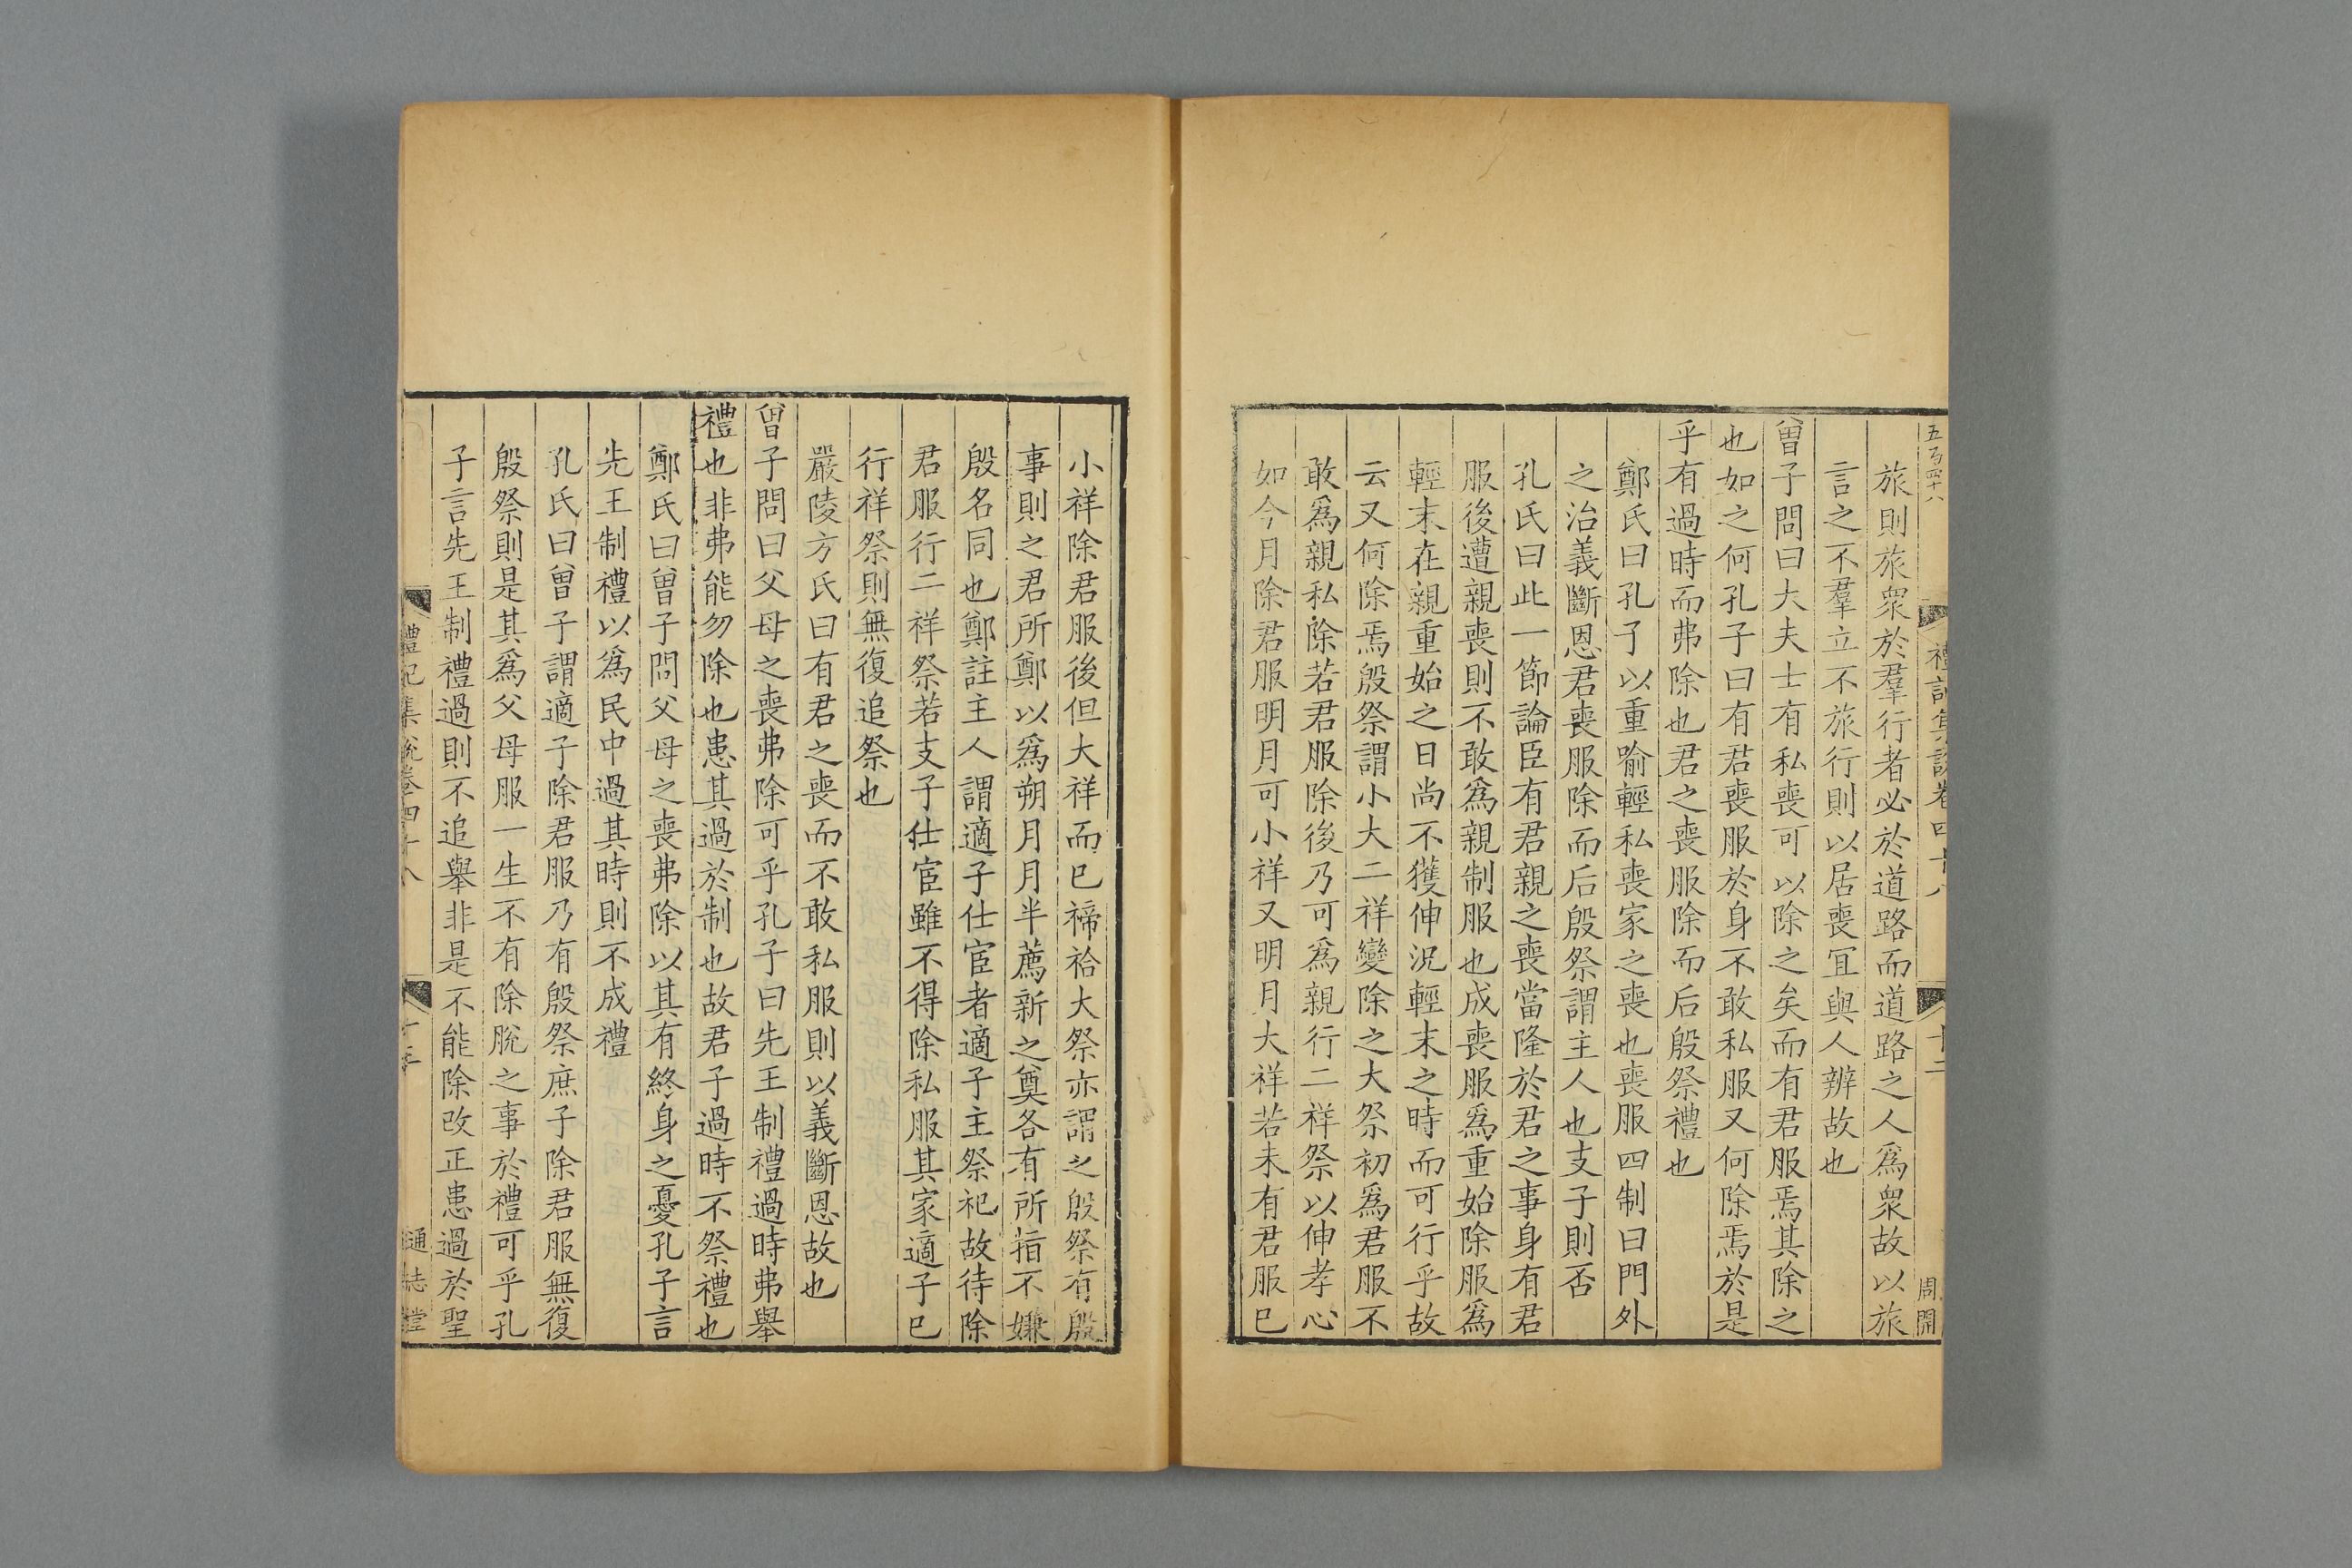 五百四十八
禮記集說卷四十八
十二
周開
旅則旅衆於羣行者必於道路而道路之人爲衆故以旅
言之不羣立不旅行則以居喪冝與人辨故也
曾子問曰大夫士有私喪可以除之矣而有君服焉其除之
也如之何孔子曰有君喪服於身不敢私服又何除焉於是
乎有過時而弗除也君之喪服除而后殷祭禮也
鄭氏曰孔子以重喻輕私喪家之喪也喪服四制曰門外
之治義斷恩君喪服除而后殷祭謂主人也支子則否
孔氏曰此一節論臣有君親之喪當隆於君之事身有君
服後遭親喪則不敢爲親制服也成喪服爲重始除服爲
輕末在親重始之日尚不獲伸況輕末之時而可行乎故
云又何除焉殷祭謂小大二祥變除之大祭初爲君服不
敢爲親私除若君服除後乃可爲親行二祥祭以伸孝心
如今月除君服明月可小祥又明月大祥若未有君服巳
小祥除君服後但大祥而巳禘祫大祭亦謂之殷祭有殷
事則之君所鄭以爲朔月月半薦新之奠各有所指不嫌
殷名同也鄭註主人謂適子仕宦者適子主祭祀故待除
君服行二祥祭若支子仕宦雖不得除私服其家適子巳
行祥祭則無復追祭也
嚴陵方氏曰有君之喪而不敢私服則以義斷恩故也
曾子問曰父母之喪弗除可乎孔子曰先王制禮過時弗舉
禮也非弗能勿除也患其過於制也故君子過時不祭禮也
鄭氏曰曾子問父母之喪弗除以其有終身之憂孔子言
先王制禮以爲民中過其時則不成禮
孔氏曰曾子謂適子除君服乃有殷祭庶子除君服無復
殷祭則是其爲父母服一生不有除脫之事於禮可乎孔
子言先王制禮過則不追舉非是不能除改正患過於聖
禮記集說卷四十八
通志堂